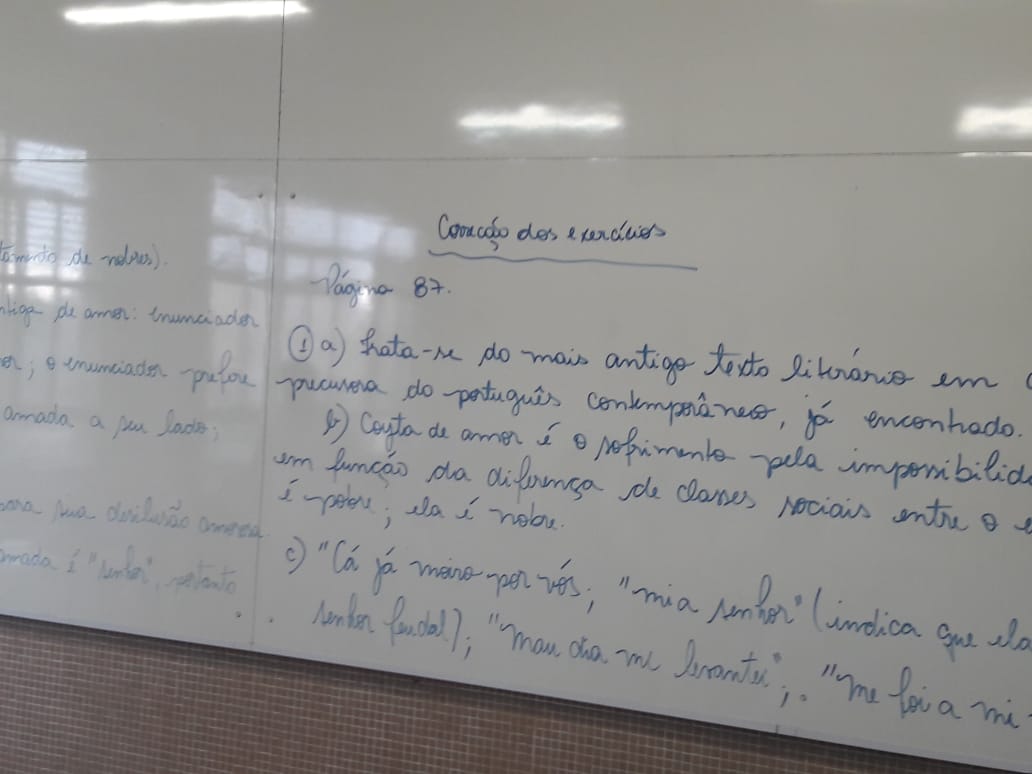 Correcção dos exercícios
Página 87.
① a) Trata-se do mais antigo texto literário em
precursora do português contemporâneo, já encontrado.
b) Coyta de amor é o sofrimento pela impossibilid
em função da diferença de classes sociais entre o e
é pobre; ela é nobre.
c) "Cá já moiro por vós; "mia senhor" (indica que ela
senhor feudal); "Mau dia me levantei";. "Me foi a mi
tamento de nobres).
ntiga de amor: enunciador
or; o enunciador prefere
amada a seu lado;
para sua desilusão amorosa
amada é "senhor", portanto